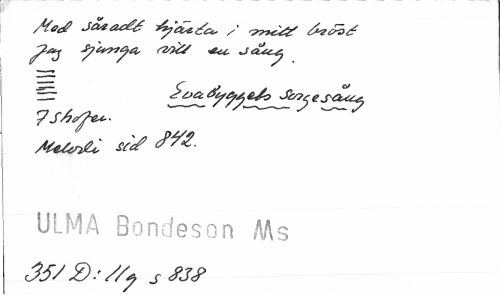 Med såradt hjärta i mitt bröst
jag sjunga vill en sång.
Evabyggets sorgesång
7 strofer.
Melodi sid 842.
ULMA Bondeson Ms
351 D: 11 q s 838